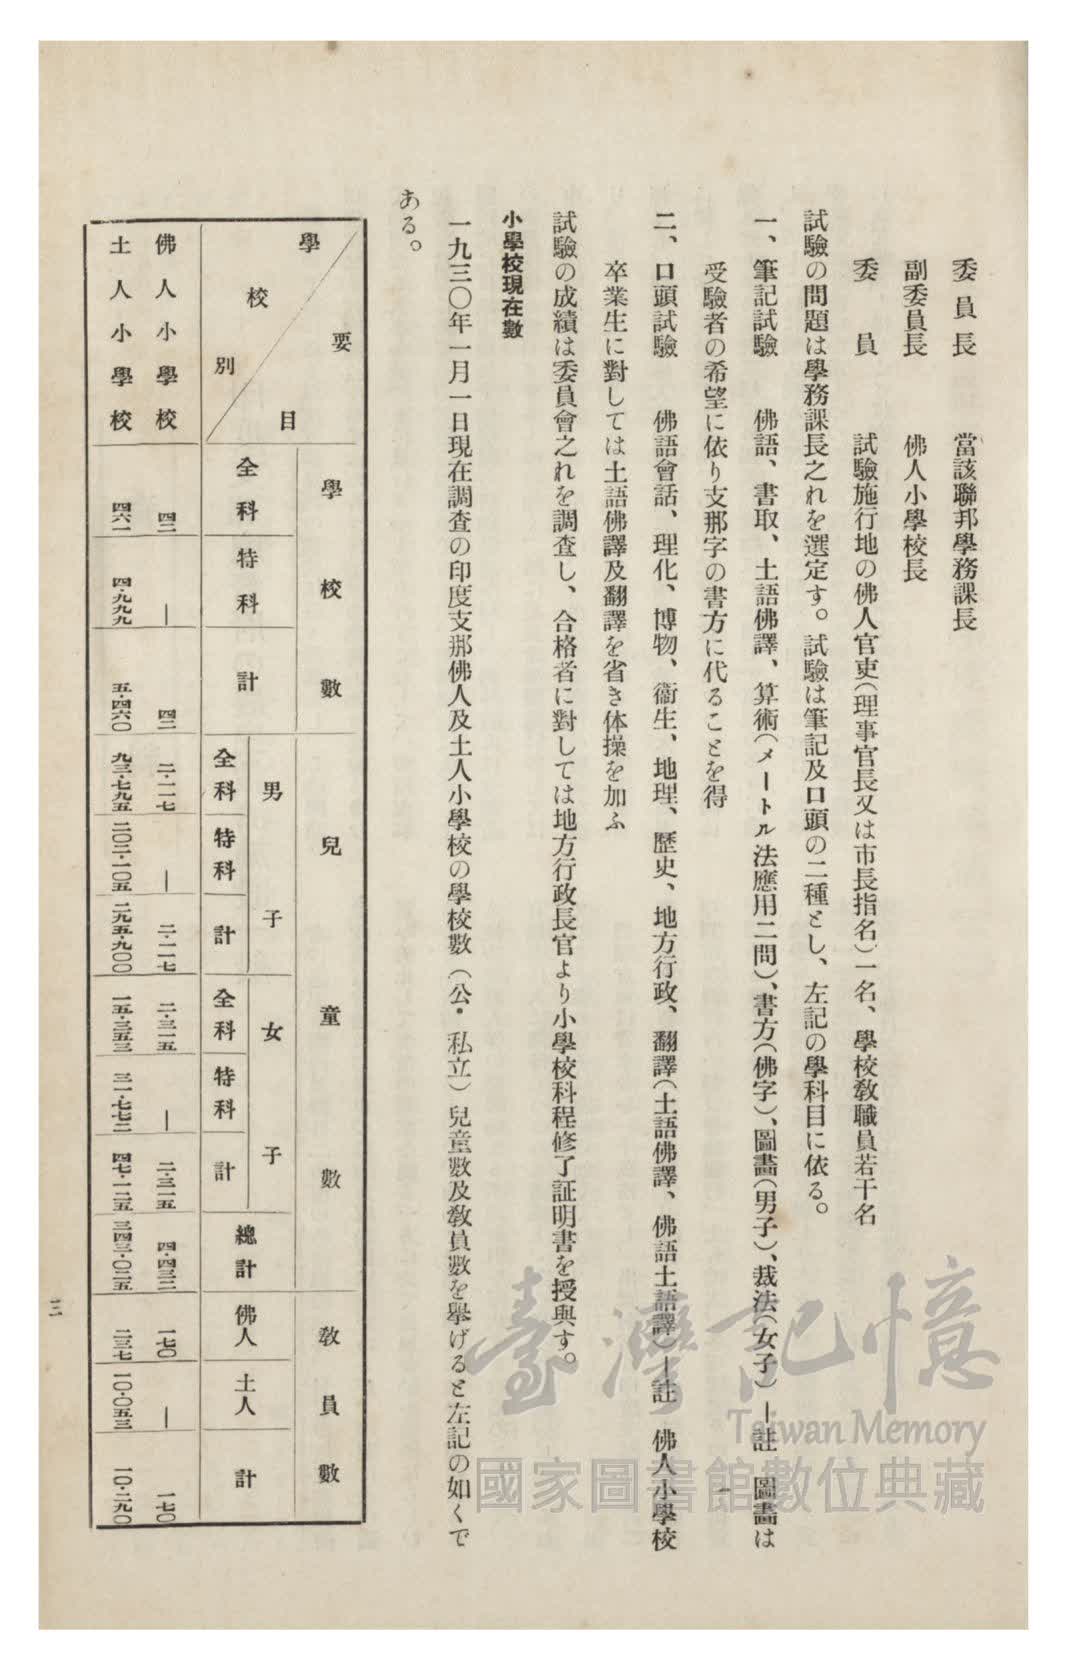 委員長　當該聯邦學務課長
副委員長　佛人小學校長
委員　試驗施行地の佛人官吏(理事官長又は市長指名)一名、學校教職員若干名
試驗の問題は學務課長之れを選定す。試驗は筆記及口頭の二種とし、左記の學科目に依る。
一、筆記試驗　佛語、書取、土語佛譯、算術(メートル法應用二問)、書方(佛字)、圖畵(男子)、裁法(女子)ー註　圖畵は
受驗者の希望に依り支那字の書方に代ることを得
二、口頭試驗　佛語會話、理化、博物、衞生、地理、歷史、地方行政、翻譯(土語佛譯、佛語土語譯)ー註　佛人小學校
卒業生に對しては土語佛譯及翻譯を省き体操を加ふ
試驗の成績は委員會之れを調査し、合格者に對しては地方行政長官より小學校科程修了証明書を授與す。
小學校現在數
一九三〇年一月一日現在調査の印度支那佛人及土人小學校の學校數(公・私立)兒童數及敎員數を擧げると左記の如くで
ある。
要目　學校別
學校數　兒童數　敎員數
男子　女子　總計　佛人　土人　計
全科　特科　計　全科　特科　計　全科　特科　計
佛人小學校　四二　ー　四二　二・一一七　ー　二・一一七　二・三一五　ー　二・三一五　四・四三二　一七〇　ー　一七〇
土人小學校　四六一　四・九九九　五・四六〇　九三・七九五　二〇二・一〇五　二九五・九〇〇　一五・三五三　三一・七七二　四七・一二五　三四三・〇二五　二三七　一〇・〇五三　一〇・二九〇
三
臺灣記憶
Taiwan Memory
國家圖書館數位典藏